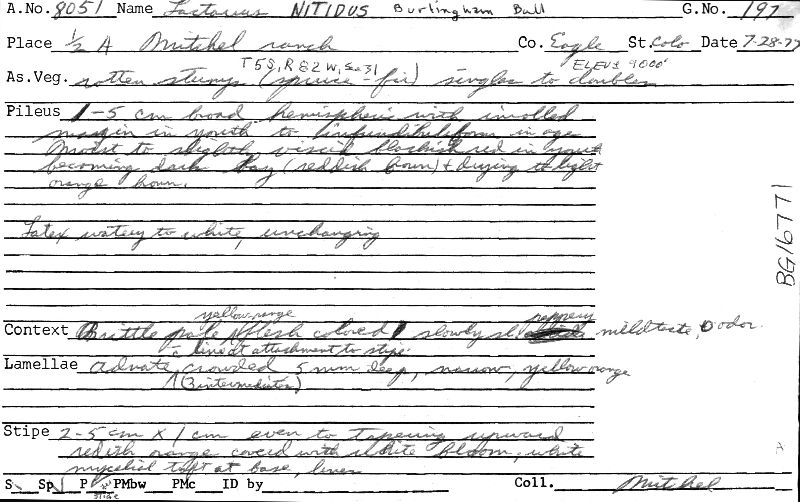 A.No. 8051 Name Lactarius NITIDUS Burlingham Bull G.No. 197
Place 1/2 A Mitchel ranch Co. Eagle St. Colo Date 7-28-77
T5S, R82W, Sec31 ELEV± 9000'
As.Veg. rotten stumps (spruce-fir) singles to doubles
Pileus 1-5 cm broad hemispheric with inrolled
margin in youth to infundibuliform in age
moist to slightly viscid blackish red in youth
becoming dark bay (reddish brown) + drying to light
orange brown.
Latex watery to white, unchanging
yellow orange peppery
Context Brittle pale flesh colored slowly sl. mild taste, 0 odor.
c line at attachment to stipe
Lamellae adnate, crowded 5 mm deep, narrow, yellow orange
(3 intermediates)
Stipe 2-5 cm X 1 cm even to tapering upward
redish orange coverd with white bloom, white
mycelial tuft at base,
S Sp P PMbw PMc ID by Coll. Mitchel
BG16771